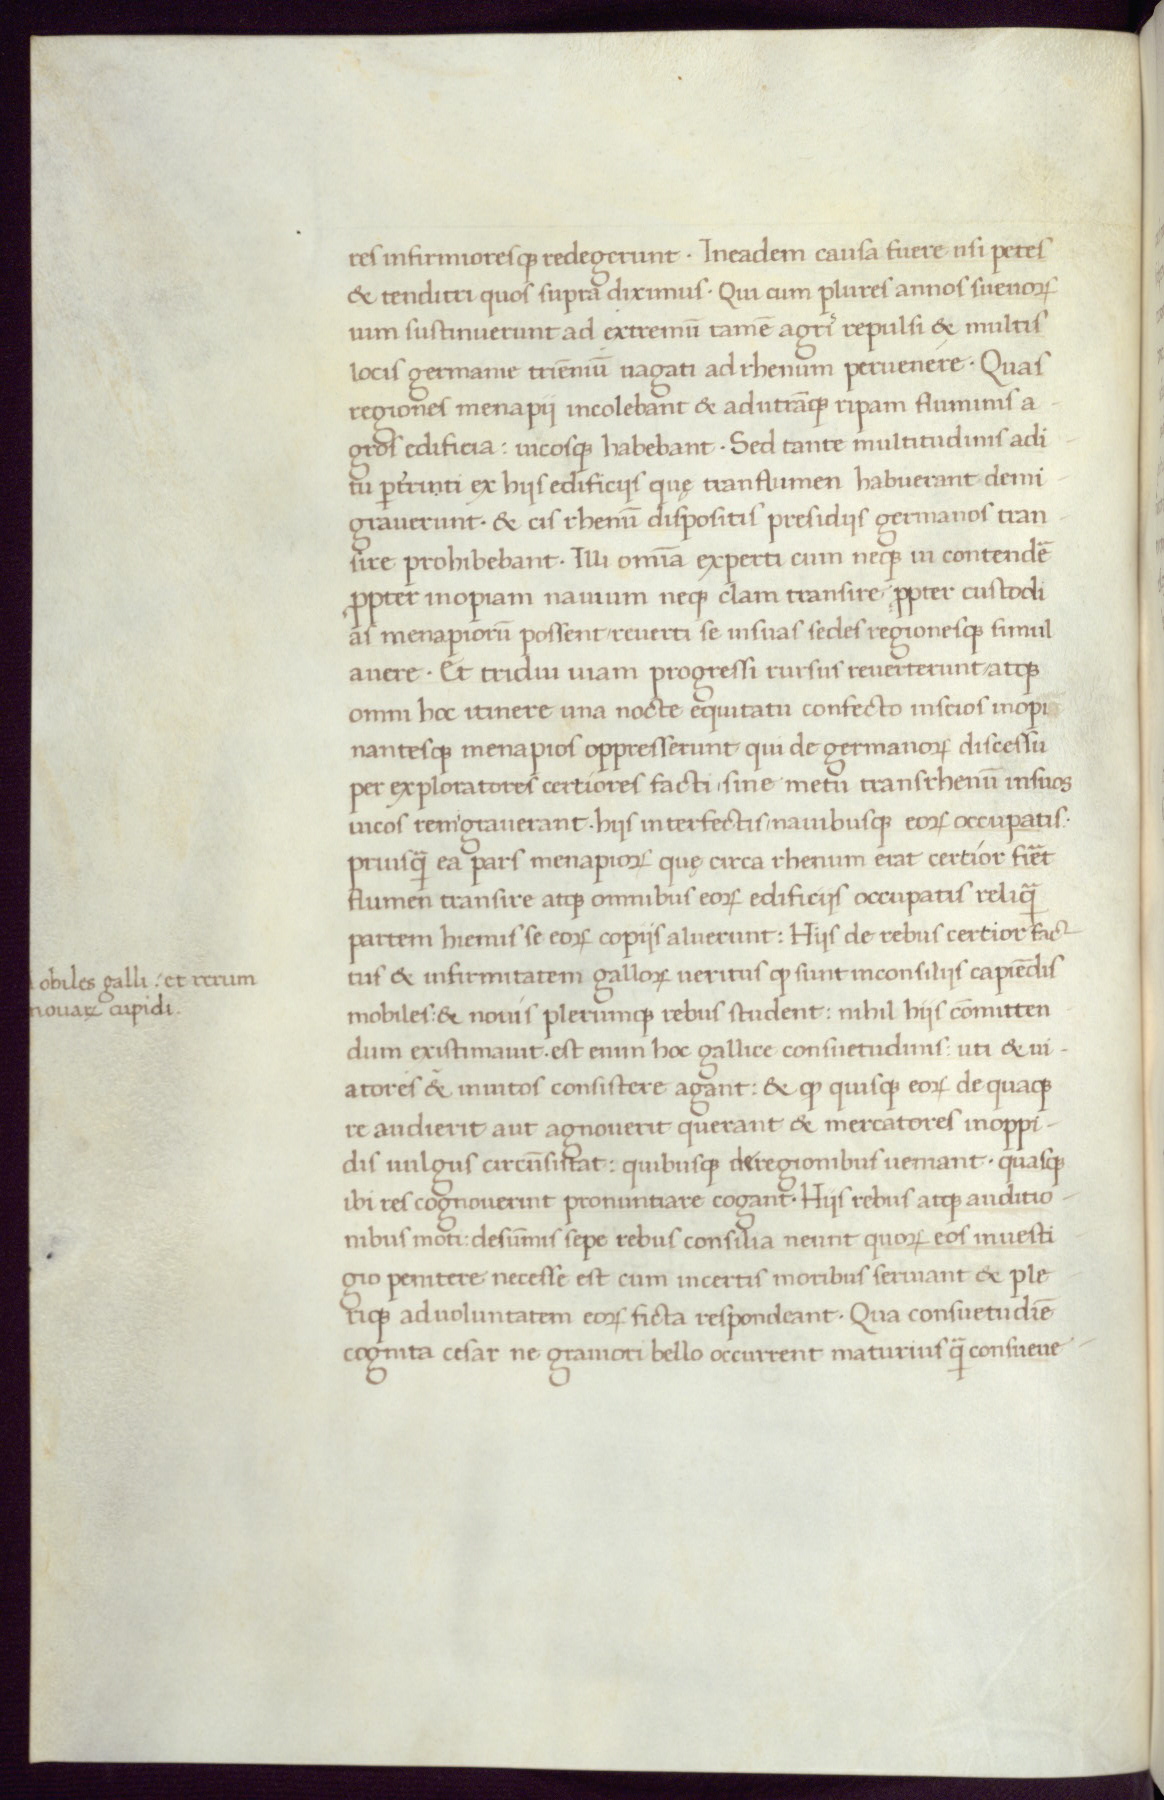 res infirmioresqꝫ redegerunt · Ineadem causa fuere usi petes
& tenditri quos supra diximus · Qui cum plures annos sueuoꝝ
uim sustinuerunt ad extremū tamē agris repulsi & multis
locis germanie triēniū uagati ad rhenum peruenere · Quas
regiones menapij incolebant & ad utrāqꝫ ripam fluminis a
gros edificia : uicosqꝫ habebant · Sed tante multitudinis adi
tu ꝑterriti ex hijs edificijs quę tranflumen habuerant demi
grauerunt · & cis rhenū dispositis presidijs germanos tran
sire prohibebant · Illi omīa experti cum neqꝫ ui contendē
ꝓpter inopiam nauium neqꝫ clam transire ꝓpter custodi
as menapiorū possent reuerti se insuas sedes regionesqꝫ simul
auere · Et tridui uiam progressi rursus reuerterunt atqꝫ
omni hoc itinere una nocte equitatu confecto inscios inopi
nantesqꝫ menapios oppresserunt qui de germanoꝝ discessu
per exploratores certiores facti sine metu transrhenū insuos
uicos remigrauerant · hijs interfectis nauibusqꝫ eoꝝ occupatis ·
priusq̄ ea pars menapioꝝ quę circa rhenum erat certior fiēt
flumen transire atqꝫ omnibus eoꝝ edificijs occupatis reliq̄
partem hiemis se eoꝝ copijs aluerunt : Hijs de rebus certior fac
tus & infirmitatem galloꝝ ueritus ꝙ sunt inconsilijs capiēdis
mobiles : & nouis plerumqꝫ rebus student : nihil hijs cōmitten
dum existimauit · est enim hoc gallice consuetudinis : uti & ui -
atores & inuitos consistere agant : & ꝙ quisqꝫ eoꝝ de quaqꝫ
re audierit aut agnouerit querant & mercatores inoppi -
dis uulgus circūsistat : quibusqꝫ deregionibus ueniant · quasqꝫ
ibi res cognouerint pronuntiare cogant · Hijs rebus atqꝫ auditio
nibus moti : desūmis sepe rebus consilia neunt quoꝝ eos inuesti
gio penitere necesse est cum incertis moribus seruiant & ple
riqꝫ aduoluntatem eoꝝ ficta respondeant · Qua consuetudiē
cognita cesar ne grauiori bello occurrent maturius q̄ consueue
obiles galli : et rerum
nouaꝝ cupidi .